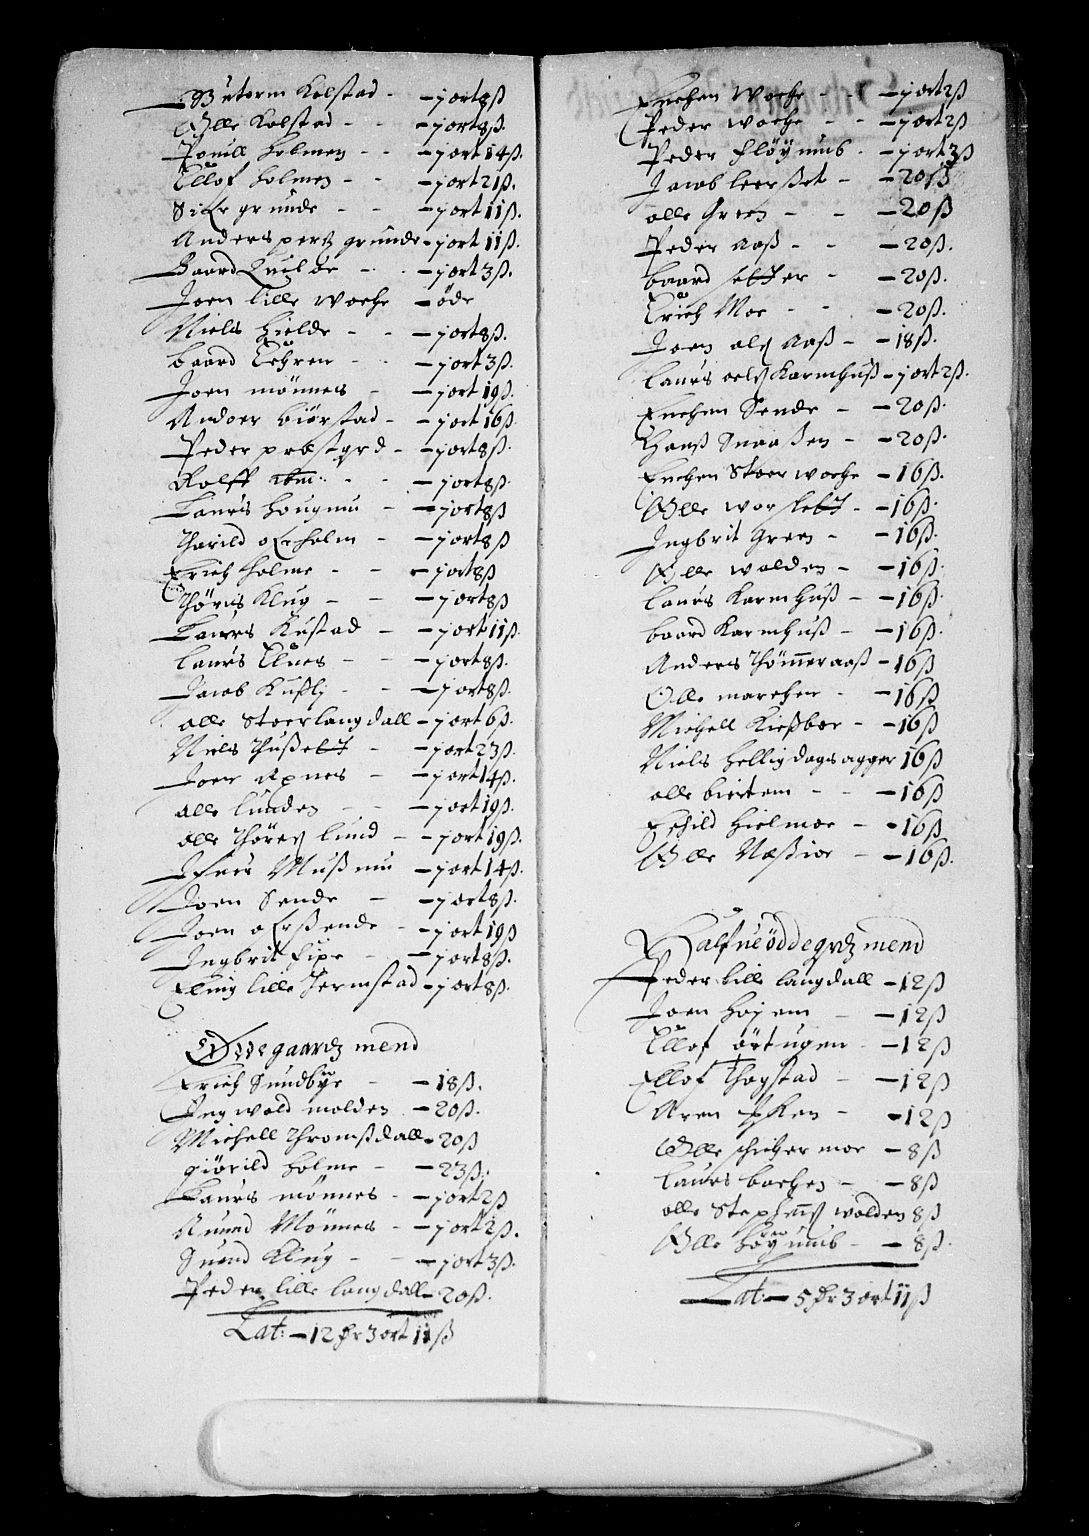 Gutorm Kolstad - - 1 ort 8 ß
Olle Kolstad - - - 1 ort 8 ß.
Pouill holmen - - 1 ort 14 ß.
Ellof holmen - - 1 ort 21 ß.
Siffr grunde - - 1 ort 11 ß.
Anders perß grunde - 1 ort 11 ß.
Baard Quelde - - 1 ort 3 ß.
Joen lille woche - öde
Niels hielde - - 1 ort 8 ß.
baard - - 1 ort 3 ß.
Joen mönnes - 1 ort 19 ß.
Andor biörstad - 1 ort 16 ß.
Peder prestgrd - 1 ort 8 ß.
Rolff ibm: - - 1 ort 8 ß.
Laurs hougmu - 1 ort 8 ß
Thorild offrholm - 1 ort 8 ß
Erich holme - - 1 ort 8 ß
Thörris Klug - - 1 ort 8 ß
Laurs Kustad - 1 ort 11 ß.
laurs Elues - - 1 ort 8 ß.
Jacob Kußly - - 1 ort 8 ß.
olle Stoerlangdall - 1 ort 6 ß.
Niels Thußett - 1 ort 23 ß.
Joen Apnes - 1 ort 14 ß.
olle lunden - - 1 ort 19 ß.
olle Thörß lund - 1 ort 19 ß.
Ifuer Mußmu - 1 ort 14 ß.
Joen Sende - - 1 ort 8 ß.
Joen offrßende - 1 ort 19 ß
Ingbrit fipe - - 1 ort 8 ß.
Eling lille Jermstad - 1 ort 8 ß.
Ödegaardß mend
Erich Sundbye - 18 ß.
Ingwold molden - 20 ß.
Michell Thromßdall - 20 ß
giörild holme - 23 ß.
Laurs mönnes - 1 ort 2 ß
Anund Mönnes - 1 ort 2 ß.
Suend Klug - - 1 ort 3 ß.
Peder lille langdall - 20 ß.
Lat: - 12 dr 3 ort 11 ß
Enchen Woche - - 1 ort 2 ß
Peder woche - - 1 ort 2 ß
Peder flöymub - 1 ort 3 ß
Jacob leerßet - 20 ß
olle Green - - 20 ß
Peder Aaß - - 20 ß.
baard setter - 20 ß.
Erich Moe - - 20 ß.
Joen olß Aaß - 18 ß.
laurs oelß Karmhuß - 1 ort 2 ß.
Enchen Sende - 20 ß.
Hanß Snaaßen - 20 ß.
Enchen Stoer woche - 16 ß.
Olle worslett - 16 ß.
Ingbrit Green - 16 ß.
Olle wolden - 16 ß.
laurs Karmhuß - 16 ß.
baard Karmhuß - 16 ß.
Anders Thömmeraaß - 16 ß
Olle marchen - 16 ß
Michell Kießboe - 16 ß
Niels helligdagsagger 16 ß
olle biertem - - 16 ß
Eskild hielmoe - 16 ß
Olle Næßioe - 16 ß.
Halfueöddegrdß mend
Peder lille langdall - 12 ß
Joen hojem - - 12 ß
Ellof örtugen - 12 ß
Ellof Thogstad - 12 ß
Aren - 12 ß
Olle moe - 8 ß
laurs bachen - 8 ß
olle Stephenß wolden 8 ß
Olle - 8 ß.
Lat: - 5 dr 3 ort 11 ß